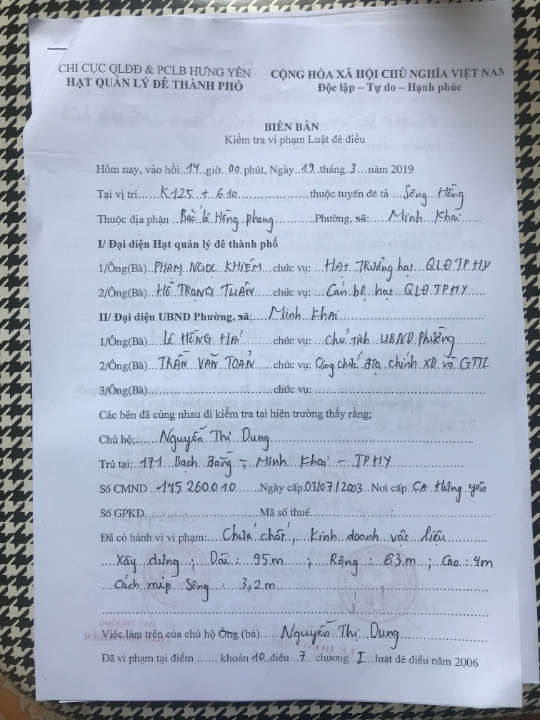 CHI CỤC QLĐĐ & PCLB HƯNG YÊN
HẠT QUẢN LÝ ĐÊ THÀNH PHỐ
CỘNG HÒA XÃ HỘI CHỦ NGHĨA VIỆT NAM
Độc lập – Tự do – Hạnh phúc
BIÊN BẢN
Kiểm tra vi phạm Luật đê điều
Hôm nay, vào hồi 14 giờ 00 phút, Ngày 19 tháng 3 năm 2019
Tại vị trí K125 + 610 thuộc tuyến đê tả Sông Hồng
Thuộc địa phận Bãi Lê Hồng Phong Phường, xã: Minh Khai
I/ Đại diện Hạt quản lý đê thành phố
1/Ông(Bà) PHẠM NGỌC KHIÊM chức vụ: Hạt Trưởng hạt QLĐ TPHY
2/Ông(Bà) HỒ TRỌNG TUẤN chức vụ: Cán bộ hạt QLĐ TPHY
II/ Đại diện UBND Phường, xã: Minh Khai
1/Ông(Bà) LÊ HỒNG HẢI chức vụ: Chủ tịch UBND phường
2/Ông(Bà) TRẦN VĂN TOẢN chức vụ: Công chức địa chính XD và GTTL
3/Ông(Bà) chức vụ:
Các bên đã cùng nhau đi kiểm tra tại hiện trường thấy rằng;
Chủ hộ: Nguyễn Thị Dung
Trú tại: 171 Bạch Đằng – Minh Khai – TPHY
Số CMND 145 260 010 Ngày cấp 03/07/2003 Nơi cấp CA Hưng Yên
Số GPKD Mã số thuế
Đã có hành vi vi phạm: Chứa chất, kinh doanh vật liệu
Xây dựng; Dài: 95m; Rộng: 63m; Cao: 4m
Cách mép sông: 3,2m
Việc làm trên của chủ hộ Ông (bà) Nguyễn Thị Dung
Đã vi phạm tại điểm khoản 10 điều 7 chương I luật đê điều năm 2006